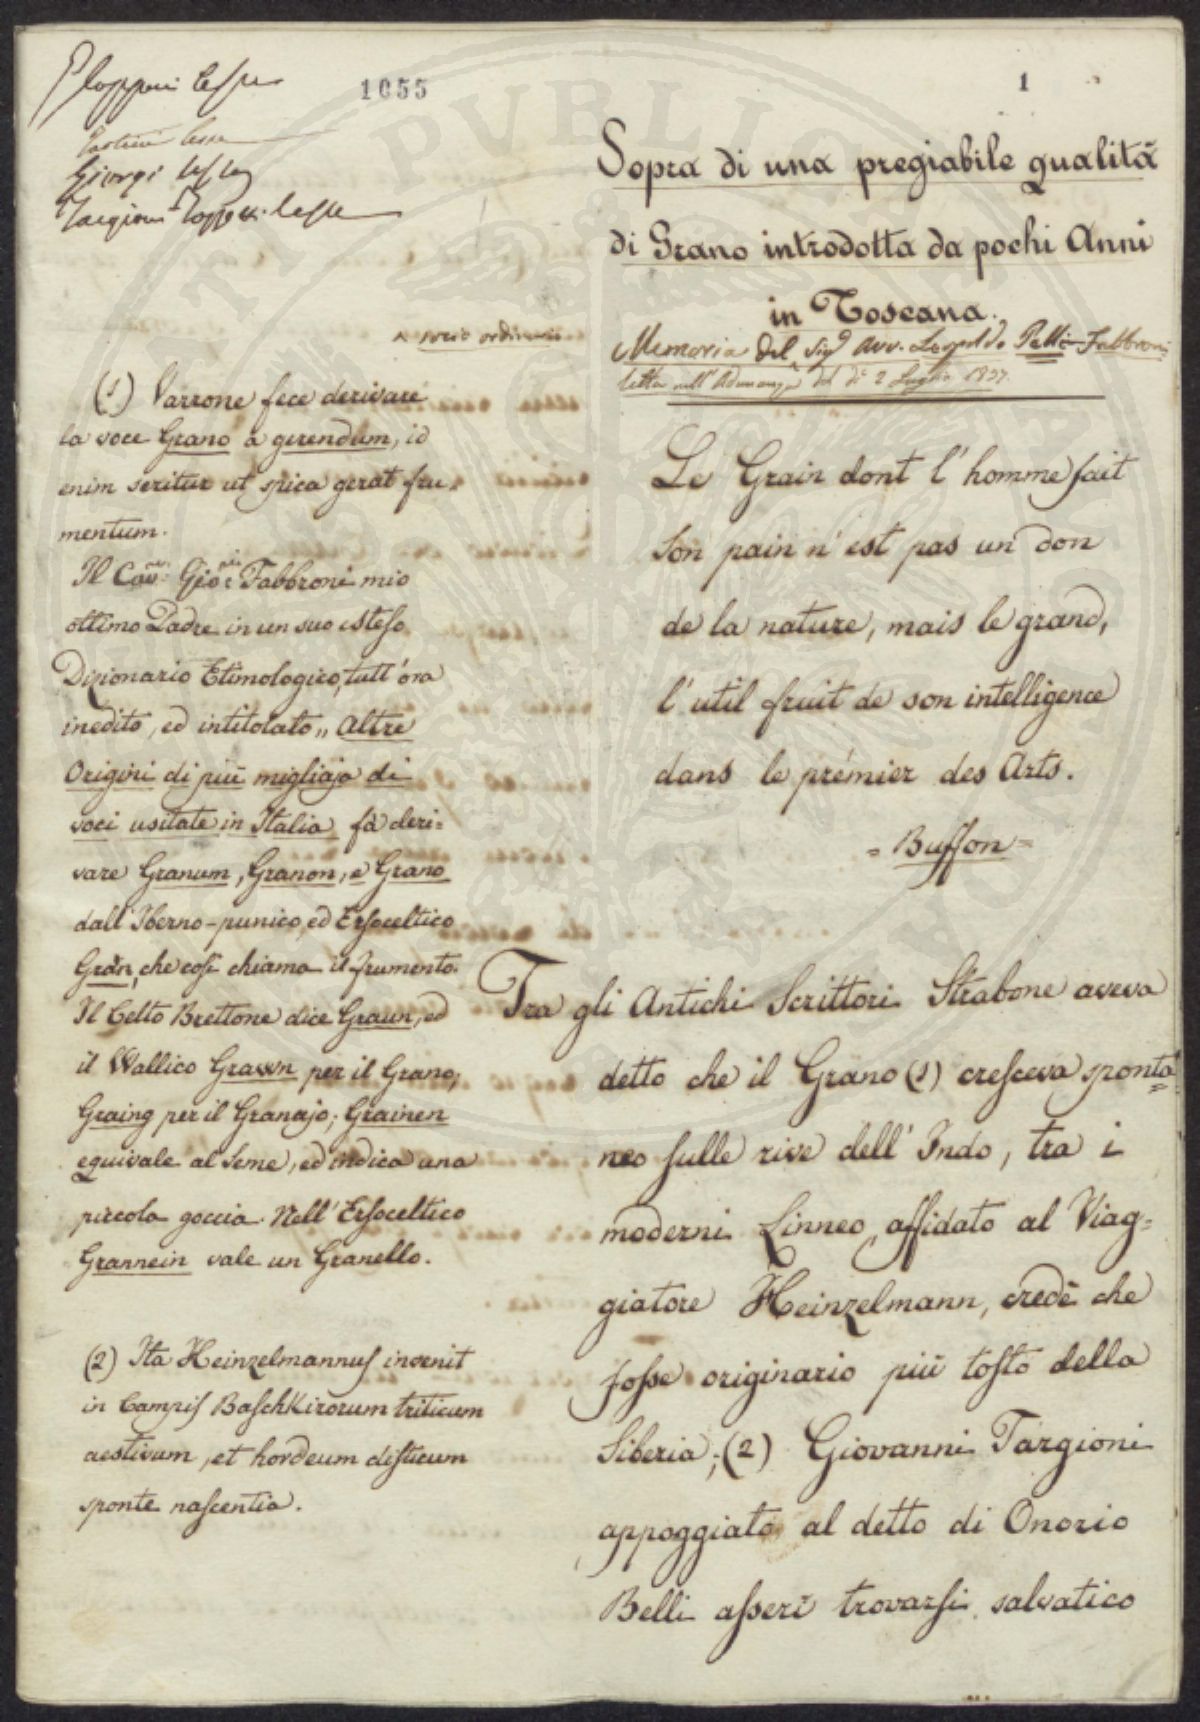 1055
1
Giorgi
Targioni
Sopra di una pregiabile qualità
di Grano introdotta da pochi Anni
in Toscana.
Memoria del Sigr Avv. Leopoldo Pelli-Fabbroni
letta nell'Adunanza del dì 2 Luglio 1837.
socio ordinario
(1) Varrone fece derivare
la voce Grano a gerendum, id
enim seritur ut spica gerat fru-
mentum.
Il Cav: Gio: Fabbroni mio
ottimo Padre in un suo esteso
Dizionario Etimologico, tutt'ora
inedito, ed intitolato „ Altre
Origini di più migliaja di
voci usitate in Italia fà deri=
vare Granum, Granon, e Grano
dall'Iberno-punico, ed Ersoceltico
Gràn, che così chiama il frumento.
Il Celto Brettone dice Graun, ed
il Wallico Grawn per il Grano;
Graing per il Granajo; Grainen
equivale al Seme, ed indica una
piccola goccia. Nell'Ersoceltico
Grannein vale un Granello.
(2) Ita Heinzelmannus invenit
in Campis Baschkirorum triticum
aestivum, et hordeum disticum
sponte nascentia.
Le Grain dont l'homme fait
Son pain n'est pas un don
de la nature, mais le grand,
l'util fruit de son intelligence
dans le prémier des Arts.
= Buffon =
Tra gli Antichi Scrittori Strabone aveva
detto che il Grano (1) cresceva sponta=
neo sulle rive dell'Indo, tra i
moderni Linneo, affidato al Viag=
giatore Heinzelmann, credè che
fosse originario più tosto della
Siberia; (2) Giovanni Targioni
appoggiato al detto di Onorio
Belli asserì trovarsi salvatico